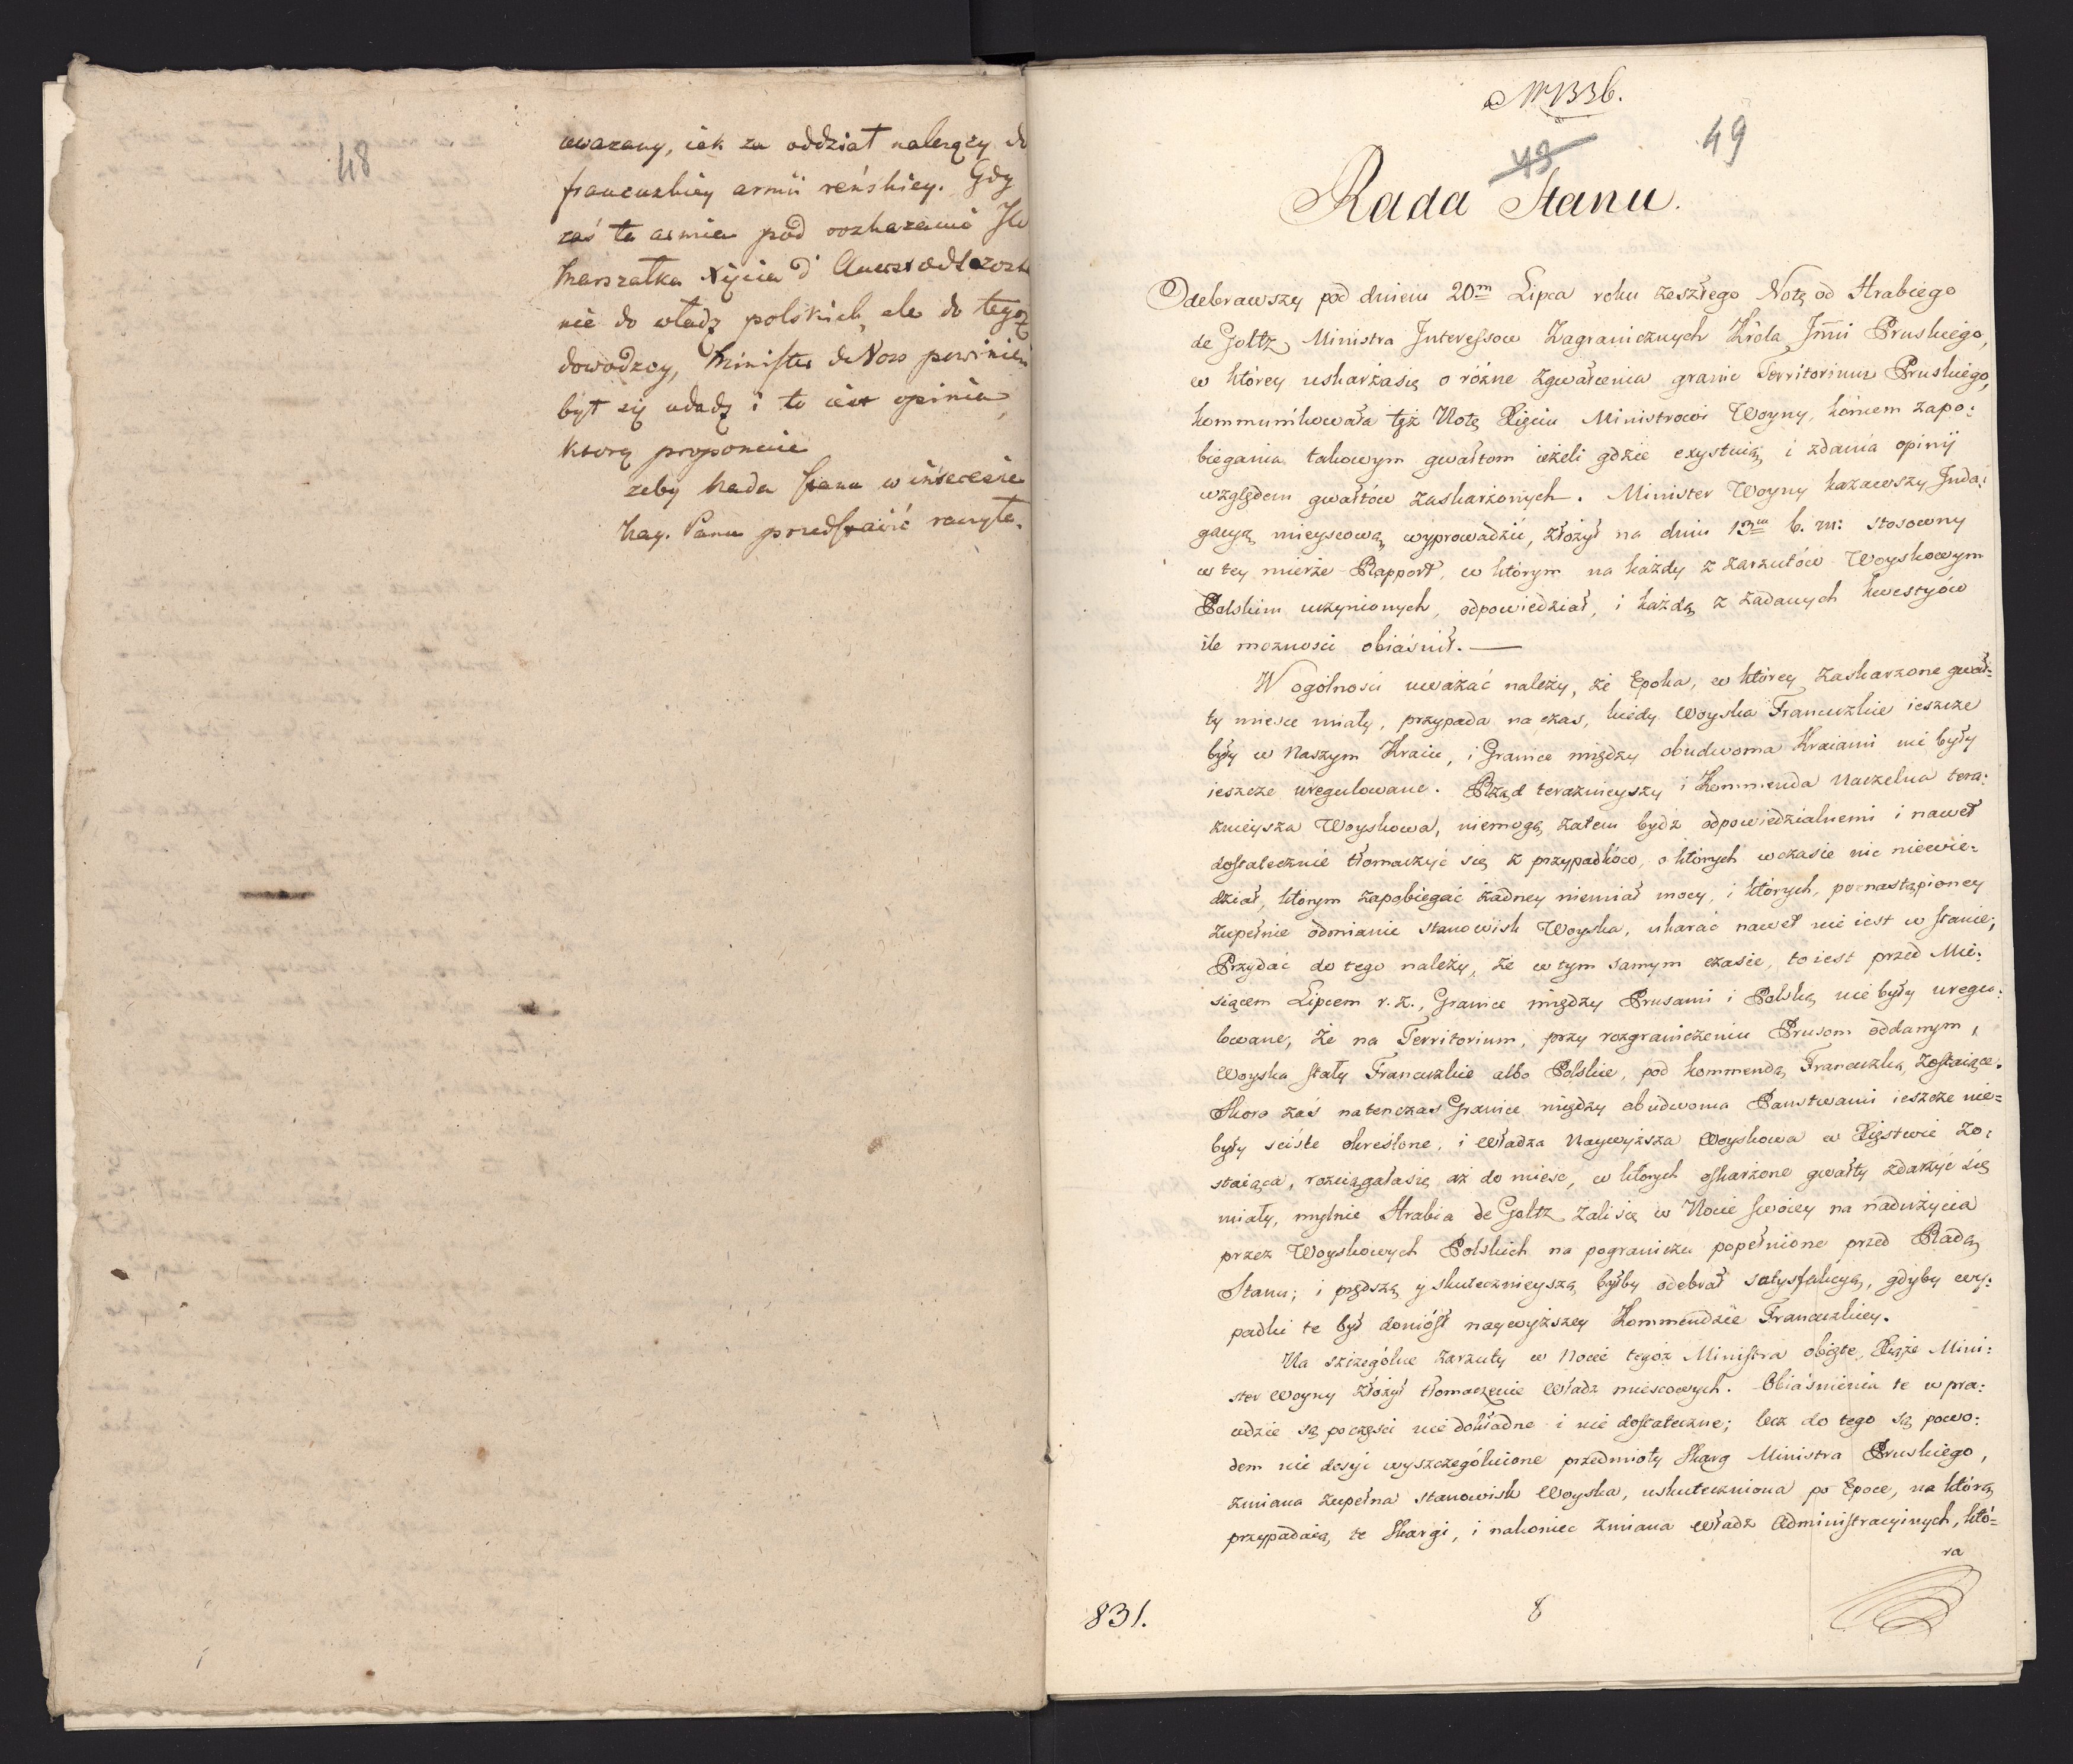 48
uwazany, iak za oddział należący do
francuzkiey armii reńskiey. Gdy
zaś ta armia pod rozkazami JW
Marszałka Xięcia d'
nie do władz polskich, ale do tegoż
dowodzcy, Minister de Voss powinien
był się udadź i to iest opinia,
ktorą proponuie
żeby Rada Stanu w interessie
Nay. Panu przedstawić raczyła.
Nr 1336.
49
43
Rada Stanu.
Odebrawszy pod dniem 20m Lipca roku zeszłego Notę od Hrabiego
de Goltz, Ministra Interessow Zagranicznych Króla Jmci Pruskiego,
w którey uskarżasię o różne zgwałcenia granic Territorium Pruskiego,
kommunikowała tęż Notę Xięciu Ministrowi Woyny, końcem zapo-
biegania takowym gwałtom ieżeli gdzie exystuią, i zdania opinij
względem gwałtów zaskarżonych. Minister Woyny kazawszy Inda-
gacyą mieyscową wyprowadzić, złożył na dniu 13m b. m: stosowny
w tey mierze Rapport, w którym na każdy z zarzutów Woyskowym
Polskim uczynionych, odpowiedział, i każdą z zadanych kwestyów
ile możności obiaśnił. —
W ogólności uważać należy, że Epoka, w którey zaskarzone gwał-
ty mieisce miały, przypada na czas, kiedy Woyska Francuzkie ieszcze
były w Naszym Kraiu, i Granice między obudwoma Kraiami nie były
ieszcze uregulowane. Rząd teraznieyszy i Kommenda Naczelna tera-
znieysza Woyskowa, niemogą zatem bydź odpowiedzialnemi i nawet
dostatecznie tłomaczyć się z przypadków, o których wczasie nic niewie-
dział, którym zapobiegać żadney niemiał mocy, i których, po nastąpioney
zupełnie odmianie stanowisk Woyska, ukarać nawet nie iest w stanie;
Przydać do tego należy, że w tym samym czasie, to iest przed Mie-
siącem Lipcem r. z., Granice między Prusami i Polską nie były uregu-
lowane, że na Territorium, przy rozgraniczeniu Prusom oddanym,
Woyska stały Francuzkie albo Polskie, pod kommendą Francuzką zostaiące.
Skoro zaś natenczas Granice między obudwoma Panstwami ieszcze nie-
były ściśle określone, i władza Naywyższa Woyskowa w Xięstwie zo-
staiąca, rozciągałasię aż do mieisc, w których oskarżone gwałty zdarzyć się
miały, mylnie Hrabia de Goltz żali się w Nocie swoiey na nadużycia
przez Woyskowych Polskich na pograniczu popełnione przed Radą
Stanu; i prędszą y skutecznieyszą byłby odebrał satysfakcyą, gdyby wy-
padki te był doniósł naywyższey Kommendzie Francuzkiey.
Na szczególne zarzuty w Nocie tegoż Ministra obięte, Xiąże Mini-
ster Woyny złożył tłomaczenie władz mieiscowych. Obiaśnienia te w pra-
wdzie są poczęsci nie dokładne i nie dostateczne; lecz do tego są powo-
dem nie dosyć wyszczególnione przedmioty Skarg Ministra Pruskiego,
zmiana zupełna stanowisk Woyska, uskuteczniona po Epoce, na którą
przypadaią te Skargi, i nakoniec zmiana władz Administracyinych, któ-
ra
831.
8